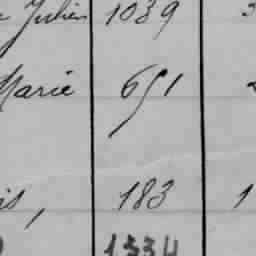 Julien 1039
Marie 651
is, 183 1
1334